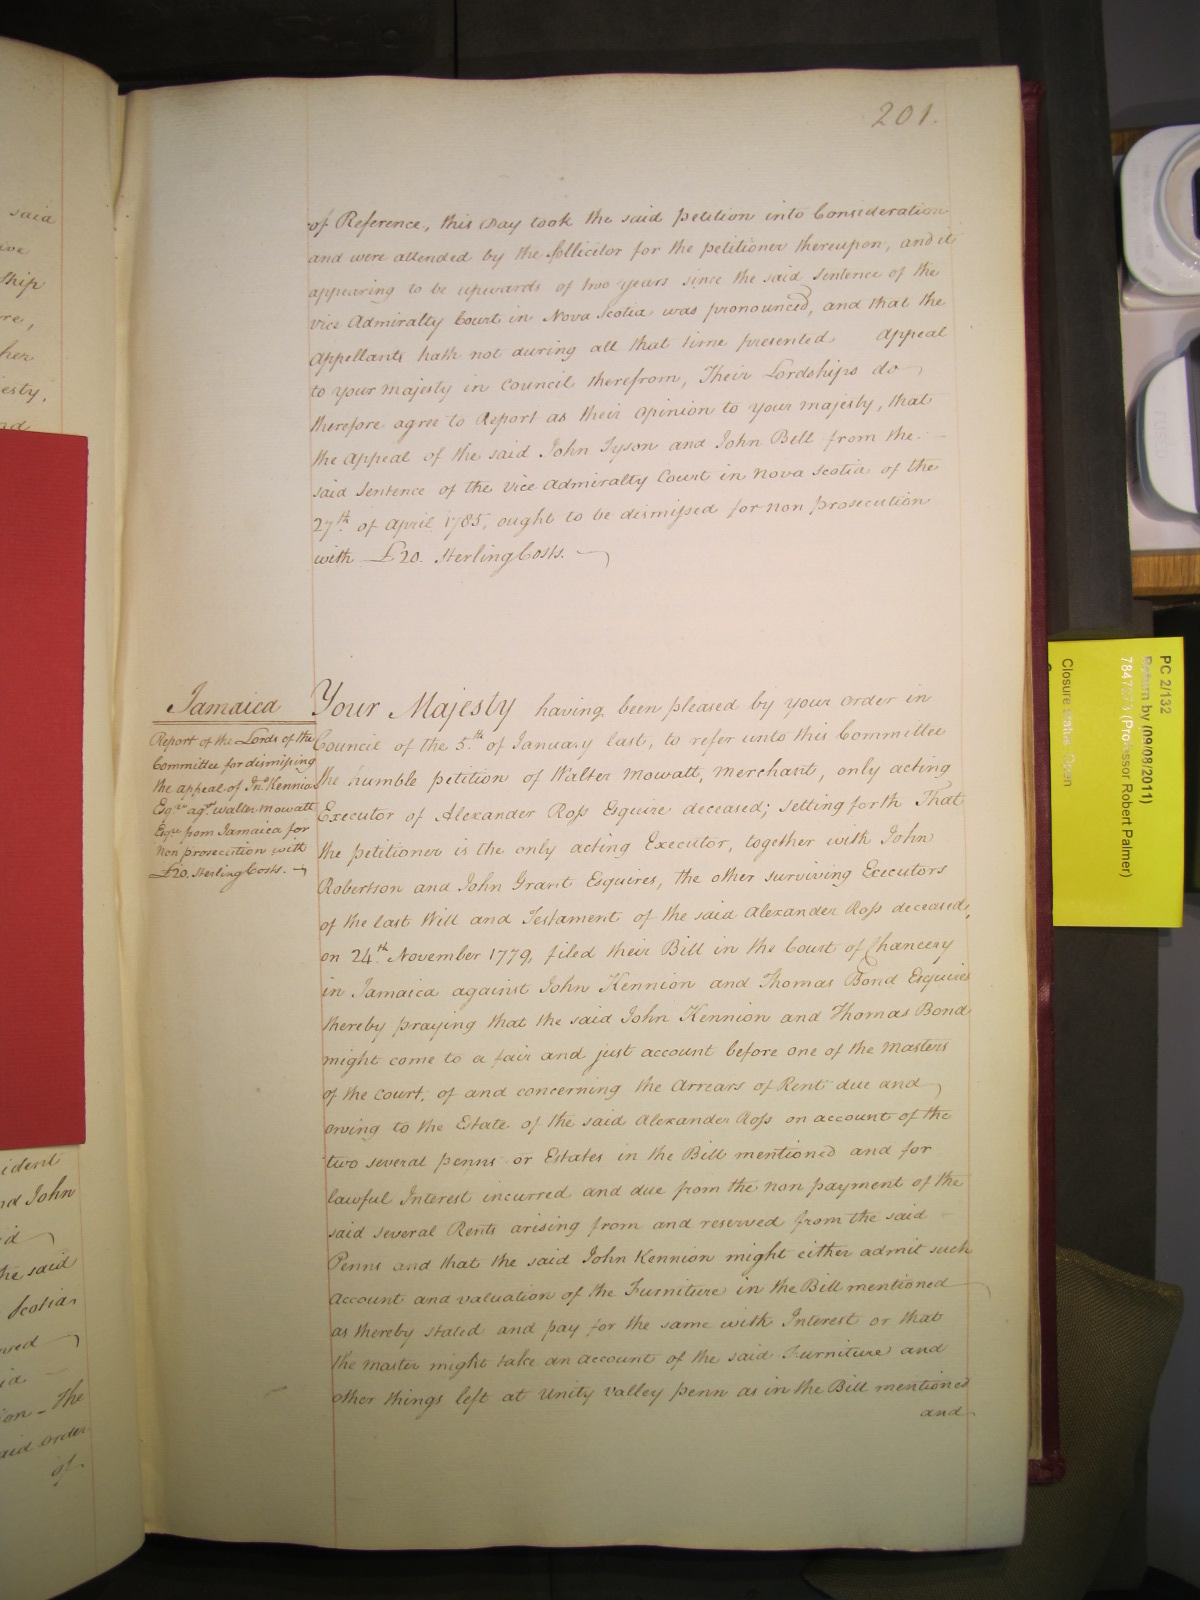 201.
of Reference, this Day took the said petition into Consideration
and were attended by the Sollicitor for the petitioner thereupon, and it
appearing to be upwards of two years since the said sentence of the
vice Admiralty Court in Nova Scotia was pronounced, and that the
Appellants hath not during all that time presented Appeal
to your majesty in Council therefrom, Their Lordships do
therefore agree to Report as their opinion to your majesty, that
the Appeal of the said John Tyson and John Bell from the
said Sentence of the vice Admiralty Court in Nova Scotia of the
27th of April 1785, ought to be dismissed for non prosecution
with £20. Sterling Costs.
Jamaica
Report of the Lords of the
Committee for dismissing
the appeal of Jno. Kennion
Esqre. agt. walter mowatt
Esqre from Jamaica for
non prosecution with
£20. Sterling Costs.
Your Majesty having been pleased by your order in
Council of the 5th. of January last, to refer unto this Committee
the humble petition of Walter Mowatt, Merchant, only acting
Executor of Alexander Ross Esquire deceased; setting forth That
the petitioner is the only acting Executor, together with John
Robertson and John Grant Esquires, the other surviving Executors
of the last Will and Testament of the said Alexander Ross deceased,
on 24th. November 1779, filed their Bill in the Court of Chancery
in Jamaica against John Kennion and Thomas Bond Esquires
thereby praying that the said John Kennion and Thomas Bond
might come to a fair and just account before one of the Masters
of the Court, of and concerning the Arrears of Rent due and
owing to the Estate of the said Alexander Ross on account of the
two several penns or Estates in the Bill mentioned and for
lawful Interest incurred and due from the non payment of the
said several Rents arising from and reserved from the said
Penns and that the said John Kennion might either admit such
Account and valuation of the Furniture in the Bill mentioned
as thereby stated and pay for the same with Interest or that
the master might take an account of the said Furniture and
other things left at Unity valley penn as in the Bill mentioned
and
said
ship
her
esty,
ident
nd John
he said
Scotia
The
said order
of
PC 2/132
Return by (09/08/2011)
(Professor Robert Palmer)
Closure status: Open